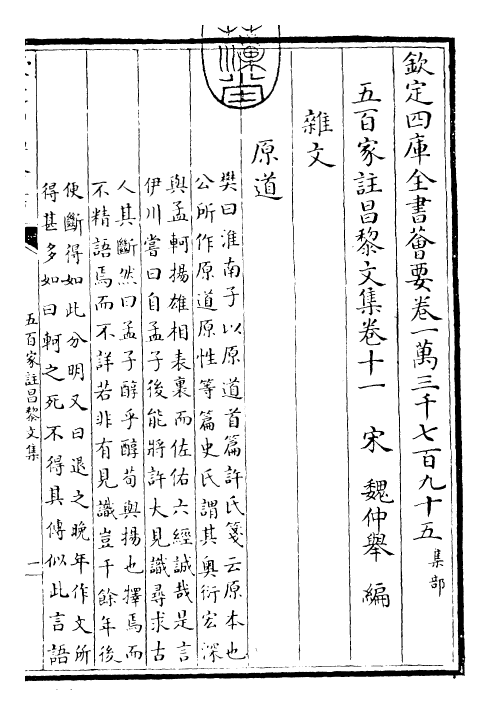 欽定四庫全書薈要卷一萬三千七百九十五 集部
五百家註昌黎文集卷十一 宋 魏仲舉 編
雜文
原道
樊曰淮南子以原道首篇許氏箋云原本也
公所作原道原性等篇史氏謂其奧衍宏深
與孟軻揚雄相表裏而佐佑六經誠哉是言
伊川嘗曰自孟子後能將許大見識尋求古
人其斷然曰孟子醇乎醇荀與揚也擇焉而
不精語焉而不詳若非有見識豈千餘年後
便斷得如此分明又曰退之晚年作文所
得甚多如曰軻之死不得其傳似此言語
五百家註昌黎文集
一